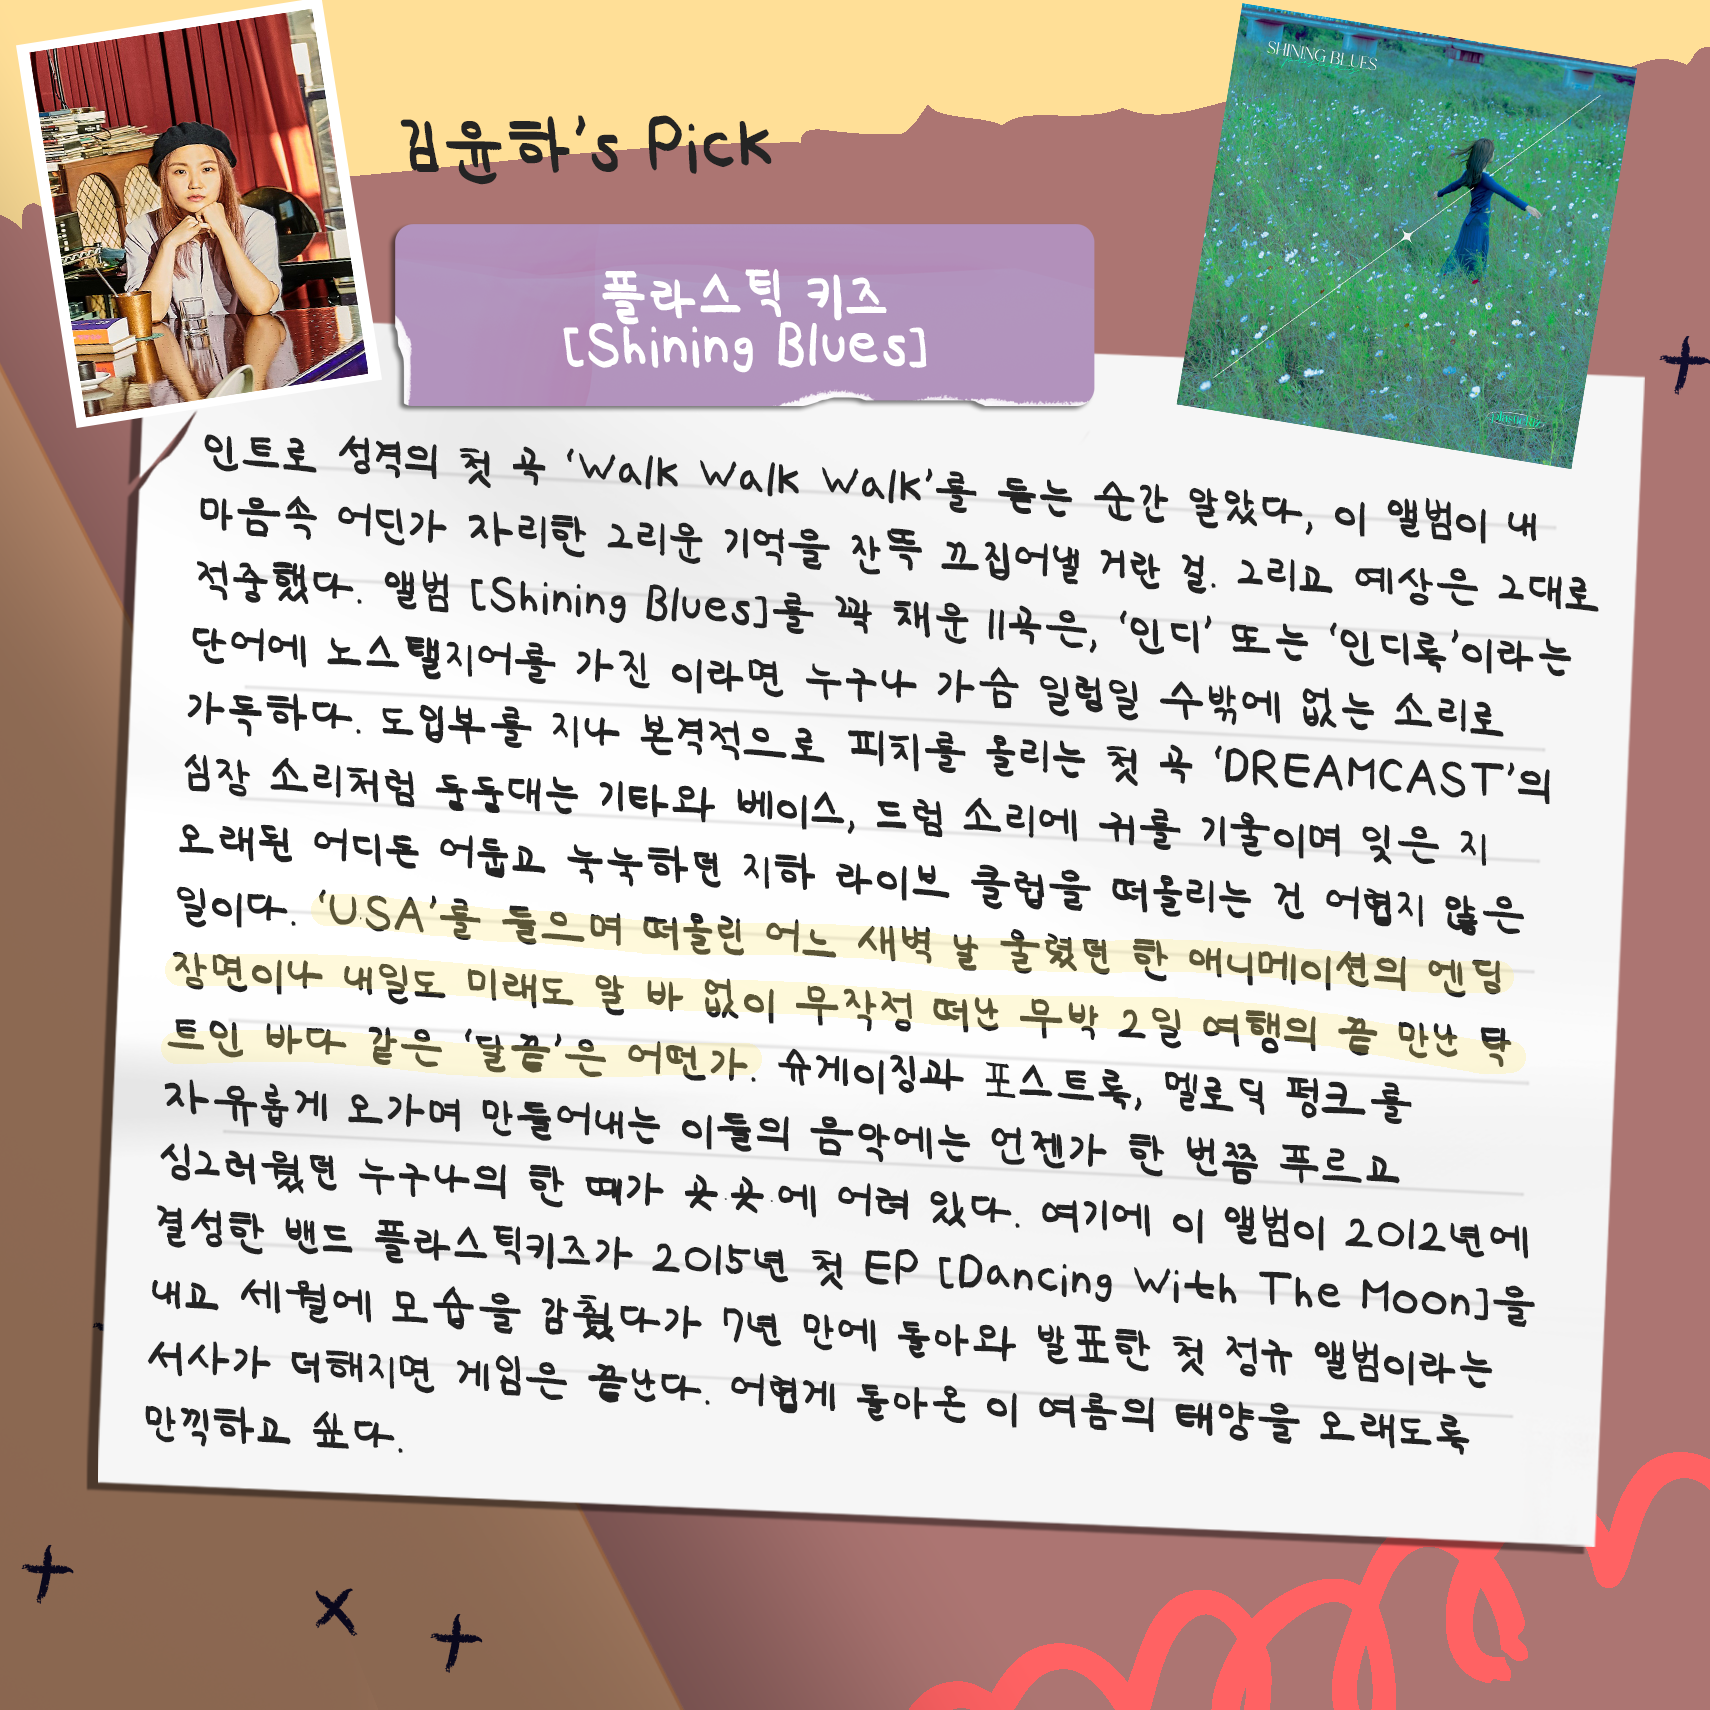 김윤하's Pick
SHINING BLUES
플라스틱 키즈
[Shining Blues]
plastic kidz
인트로 성격의 첫 곡 'Walk Walk Walk'를 듣는 순간 알았다, 이 앨범이 내
마음속 어딘가 자리한 그리운 기억을 잔뜩 끄집어낼 거란 걸. 그리고 예상은 그대로
적중했다. 앨범 [Shining Blues]를 꽉 채운 11곡은, '인디' 또는 '인디록'이라는
단어에 노스탤지어를 가진 이라면 누구나 가슴 일렁일 수밖에 없는 소리로
가득하다. 도입부를 지나 본격적으로 피치를 올리는 첫 곡 'DREAMCAST'의
심장 소리처럼 둥둥대는 기타와 베이스, 드럼 소리에 귀를 기울이며 잊은 지
오래된 어디든 어둡고 눅눅하던 지하 라이브 클럽을 떠올리는 건 어렵지 않은
일이다. 'U.S.A'를 들으며 떠올린 어느 새벽 날 울렸던 한 애니메이션의 엔딩
장면이나 내일도 미래도 알 바 없이 무작정 떠난 무박 2일 여행의 끝 만난 탁
트인 바다 같은 '달끝'은 어떤가. 슈게이징과 포스트록, 멜로딕 펑크를
자유롭게 오가며 만들어내는 이들의 음악에는 언젠가 한 번쯤 푸르고
싱그러웠던 누구나의 한 때가 곳.곳.에 어려 있다. 여기에 이 앨범이 2012년에
결성한 밴드 플라스틱키즈가 2015년 첫 EP [Dancing With The Moon]을
내고 세월에 모습을 감췄다가 7년 만에 돌아와 발표한 첫 정규 앨범이라는
서사가 더해지면 게임은 끝난다. 어렵게 돌아온 이 여름의 태양을 오래도록
만끽하고 싶다.